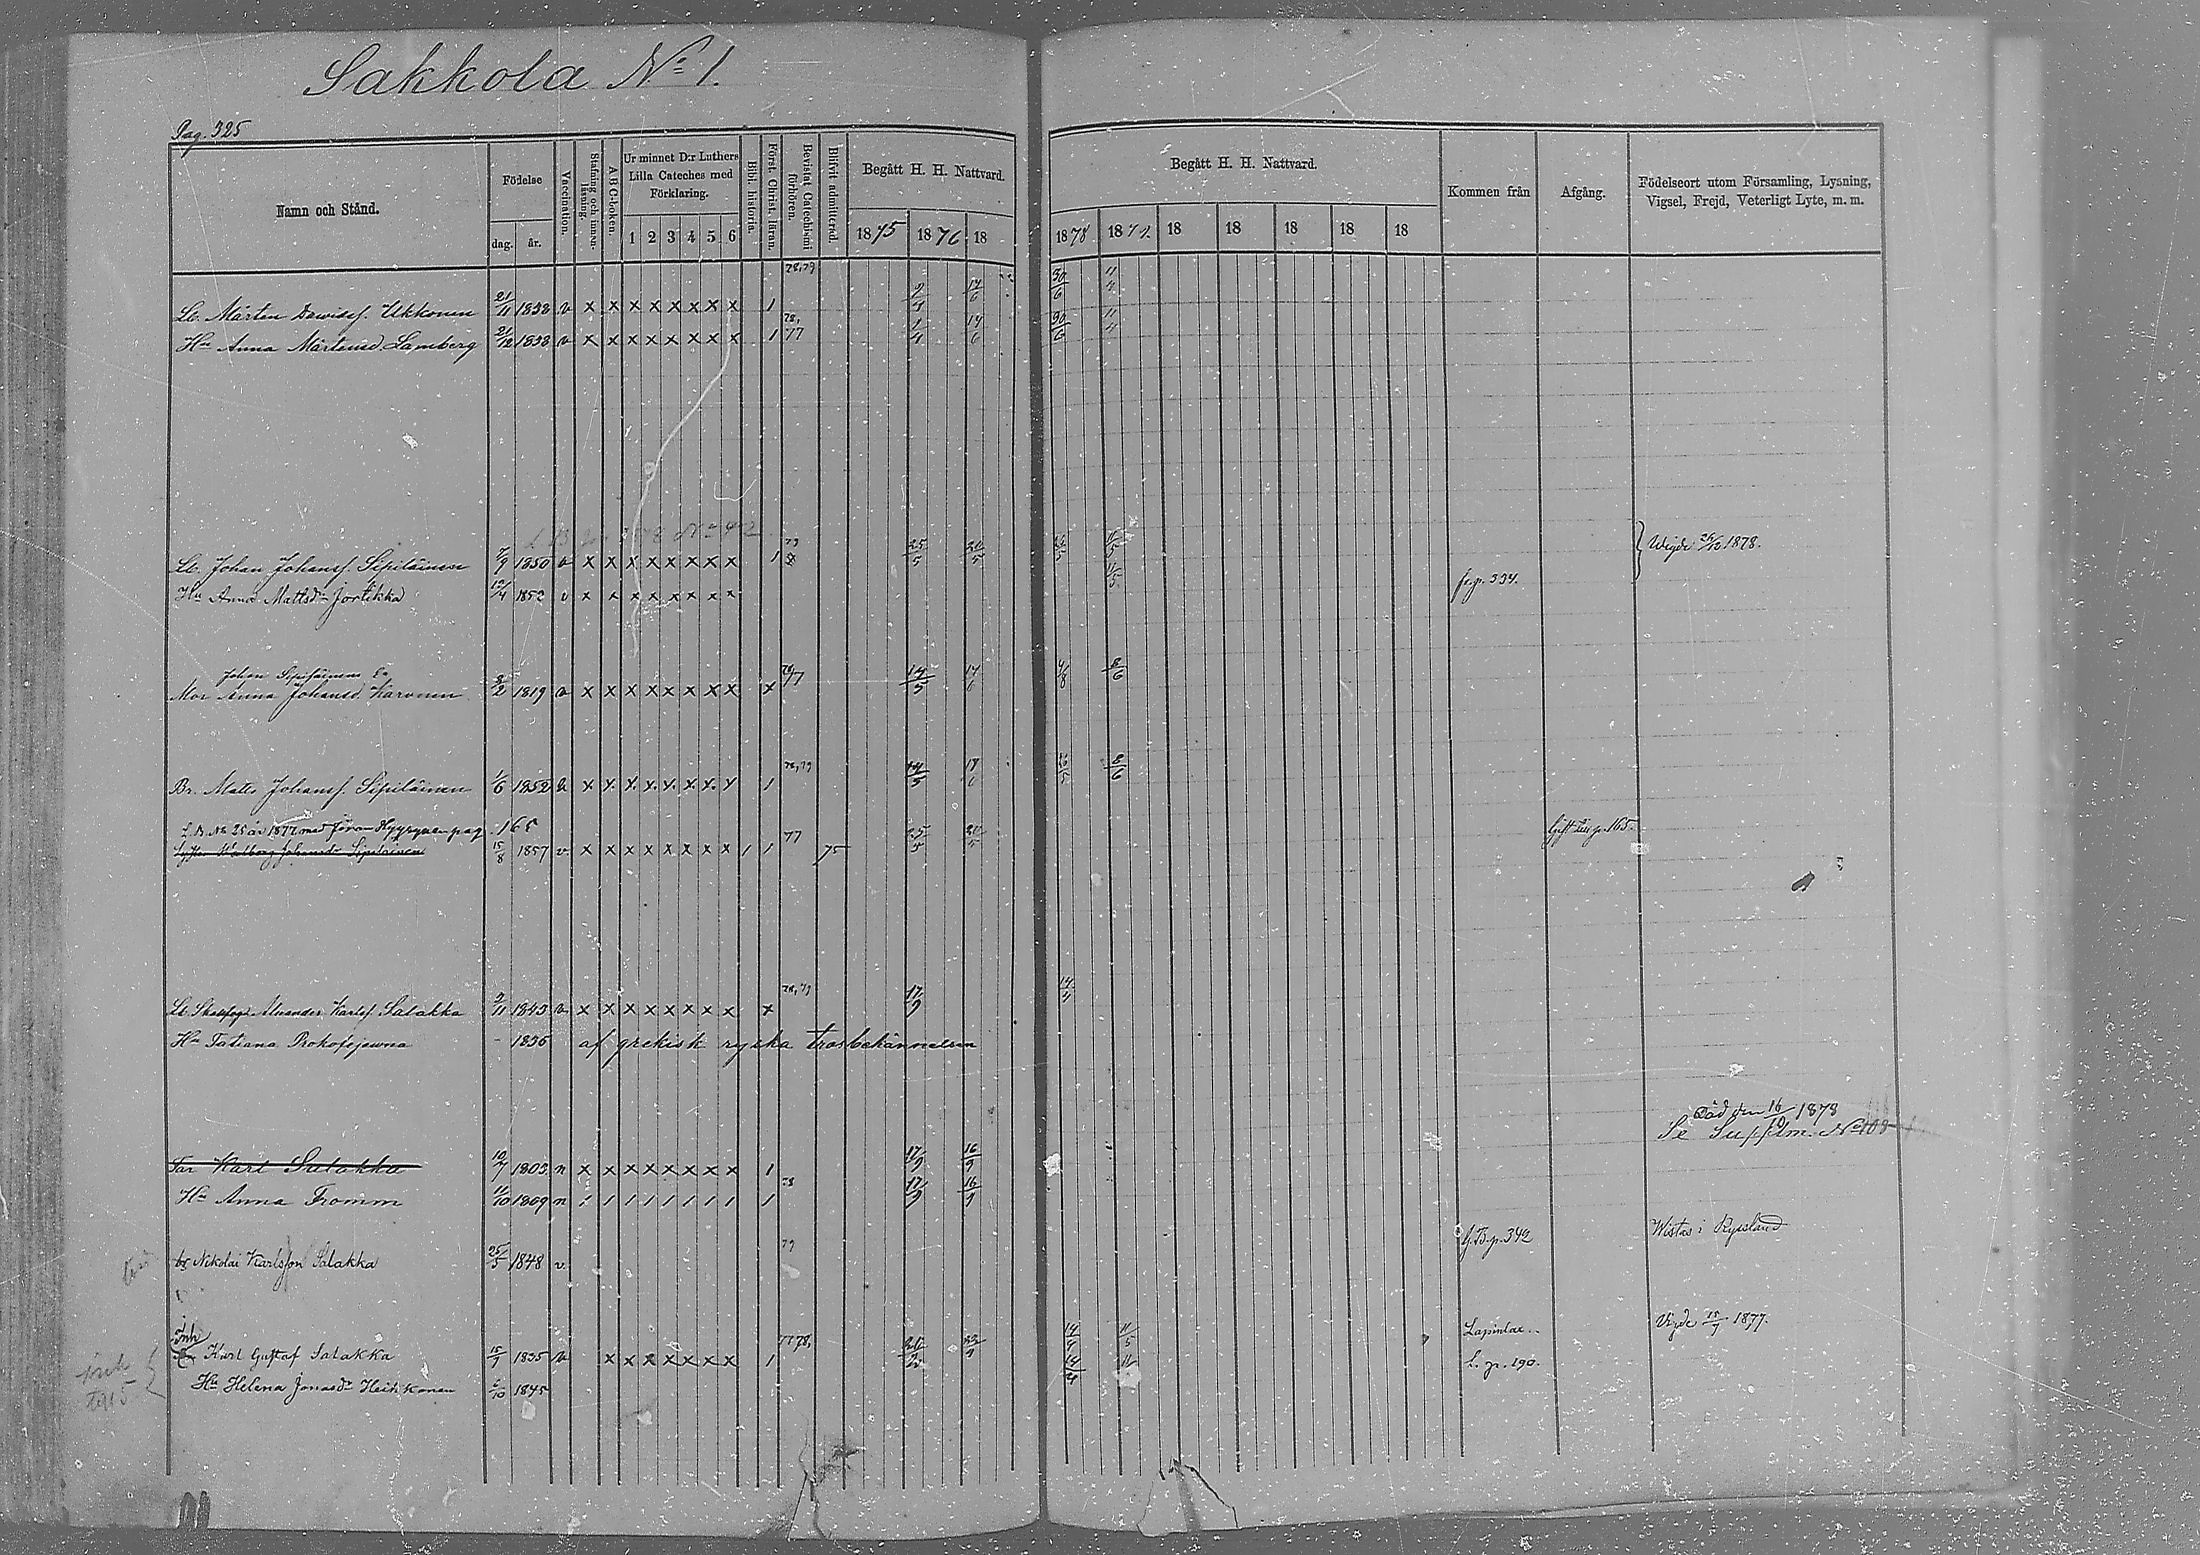 Sakkola No 1.
Pag. 325
Namn och Stånd.
Födelse
dag. år.
Vaccination.
Stafning och innanläsning.
A B C-boken.
Ur minnet D:r Luthers Lilla Cateches med Förklaring.
1 2 3 4 5 6
Bibl. historia.
Först. Christ. läran.
Bevistat Catechismi förhören.
Blifvit admitterad.
Begått H. H. Nattvard.
1875 1876 18
Begått H. H. Nattvard.
1878 1879 18 18 18 18 18
Kommen från
Afgång.
Födelseort utom Församling, Lysning, Vigsel, Frejd, Veterligt Lyte, m. m.
78,79
Lb. Mårten Dawidss. Ukkonen 21/11 1838 v x x x x x x x x 1 2/4 17/6 30/6 11/4
78,
Hu Anna Mårtensd. Lamberg 21/12 1838 v x x x x x x x x 1 77 1/4 17/6 30/6 11/4
79
Lb. Johan Johanss. Sipiläinen 7/9 1850 v x x x x x x x x 1 25/5 11/5 Wigde 26/10 1878.
Hu Anna Mattsdr Jortikka 12/4 1852 v x x x x x x x x 11/5 fr. p. 334.
Johan Sipiläinens Ea
Mor Anna Johansd. Karvonen 8/2 1819 v x x x x x x x x x 77 14/5 17/6 4/8 8/6
78,79
Br. Matts Johanss. Sipiläinen 1/6 1852 v x x x x x x x x 1 14/5 17/6 8/6
L. B. No 25 år 1877 med Jöran Hyyrynen pag. 165 Gift till p. 165.
Syster Walborg Johansdr Sipiläinen 15/8 1857 v x x x x x x x x 1 1 77 75 25/5
78,79
Lb. Skogsfogd. Alexander Karlss. Salakka 3/11 1843 v x x x x x x x x x 17/9 14/4
Hu Tatiana Prokofejewna - 1836 af grekisk ryska trosbekännelsen
Död den 16/9 1878
Se Supplm. No 109
Far Karl Salakka 10/7 1803 n x x x x x x x x 1 17/9 16/9
78
Hu Anna Fromm 11/10 1809 n 1 1 1 1 1 1 1 1 1 17/9 16/9
79
br Nikolai Karlsson Salakka 25/5 1848 v. G.B. p. 342 Wistas i Ryssland
Inh
Karl Gustaf Salakka 15/7 1835 v x x x x x x x 1 77,78, 14/4 11/5 Lapinlax. Vigde 15/7 1877.
Hu Helena Jonasdr Heikkonen 6/10 1845 14/4 11 L. p. 190.